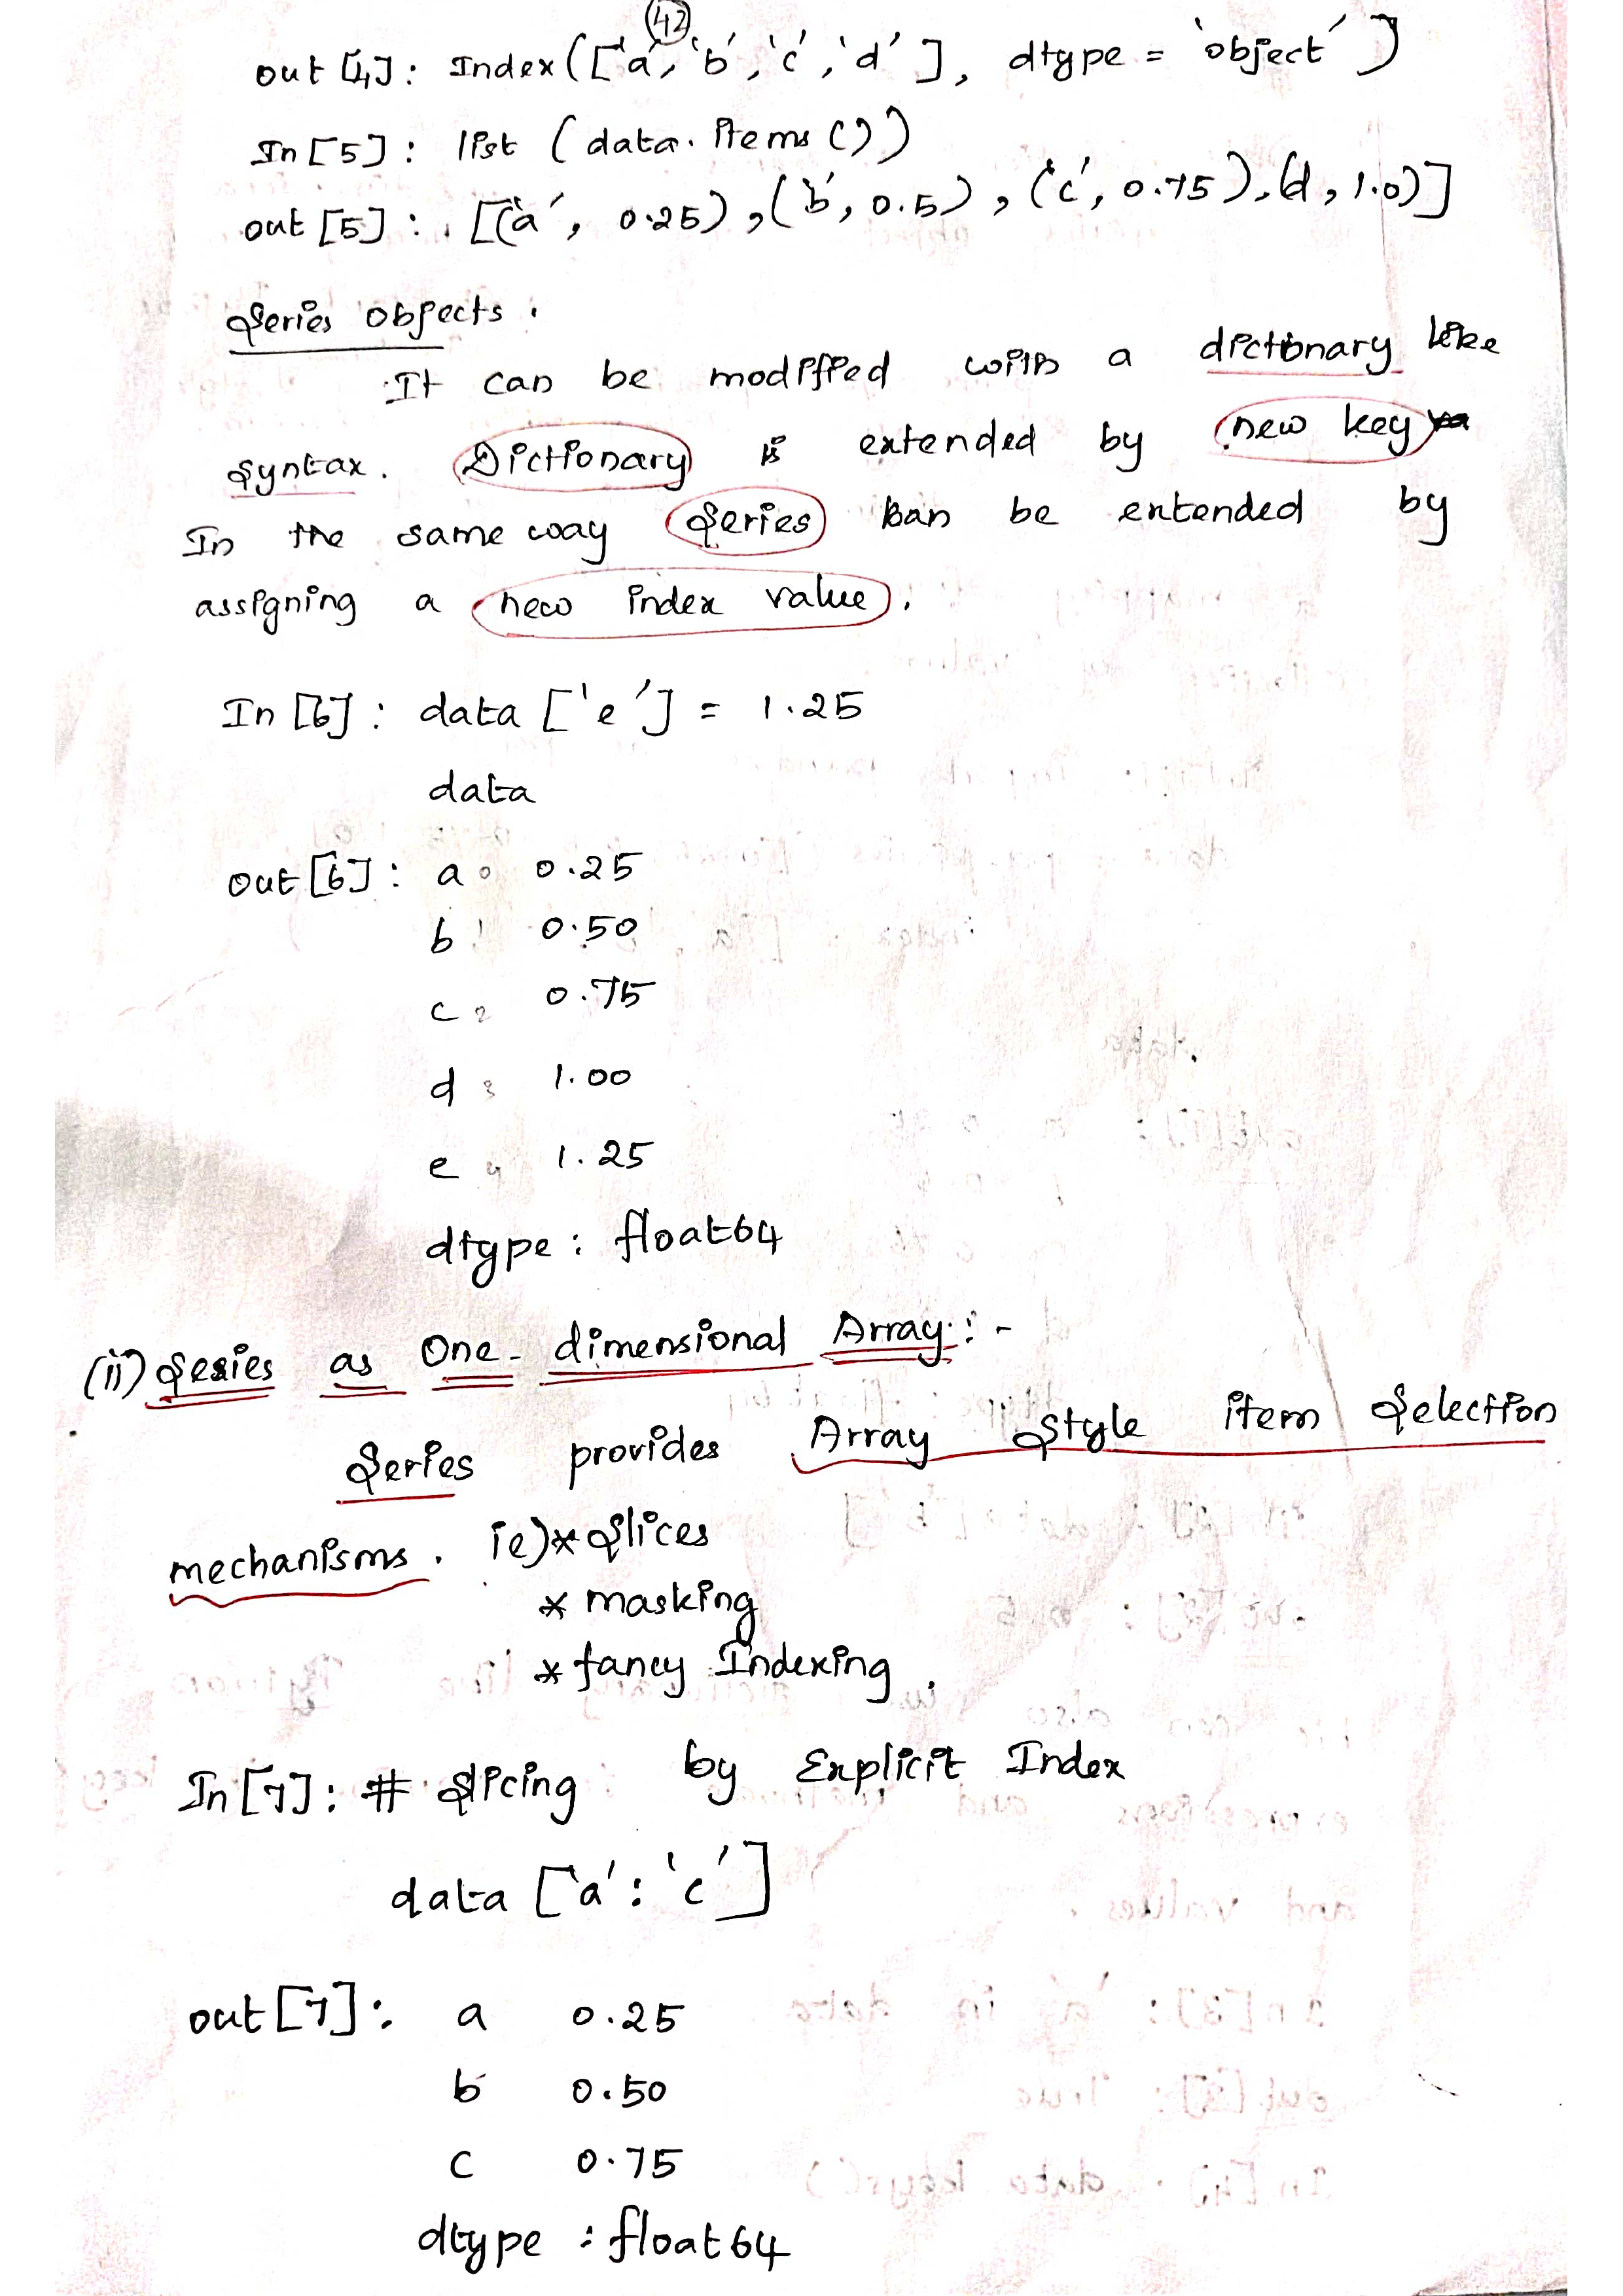 42
out [4]: Index(['a', 'b', 'c', 'd'], dtype = 'object')]
In [5]: list (data. items ())
out [5]: [('a', 0.25), ('b', 0.5), ('c', 0.75), (d, 1.0)]
Series Objects.
It can be modified with a dictionary like
syntax. Dictionary is extended by new key
In the same way Series can be extended by
assigning a new index value.
In [6]: data ['e'] = 1.25
data
out [6]: a 0.25
b 0.50
c 0.75
d 1.00
e 1.25
dtype: float64
(ii) Series as One-dimensional Array:-
Series provides Array Style item Selection
mechanisms. ie)* Slices
* masking
* fancy Indexing.
In [7]: # Slicing by Explicit Index
data ['a': 'c']
out [7]: a 0.25
b 0.50
c 0.75
dtype : float64